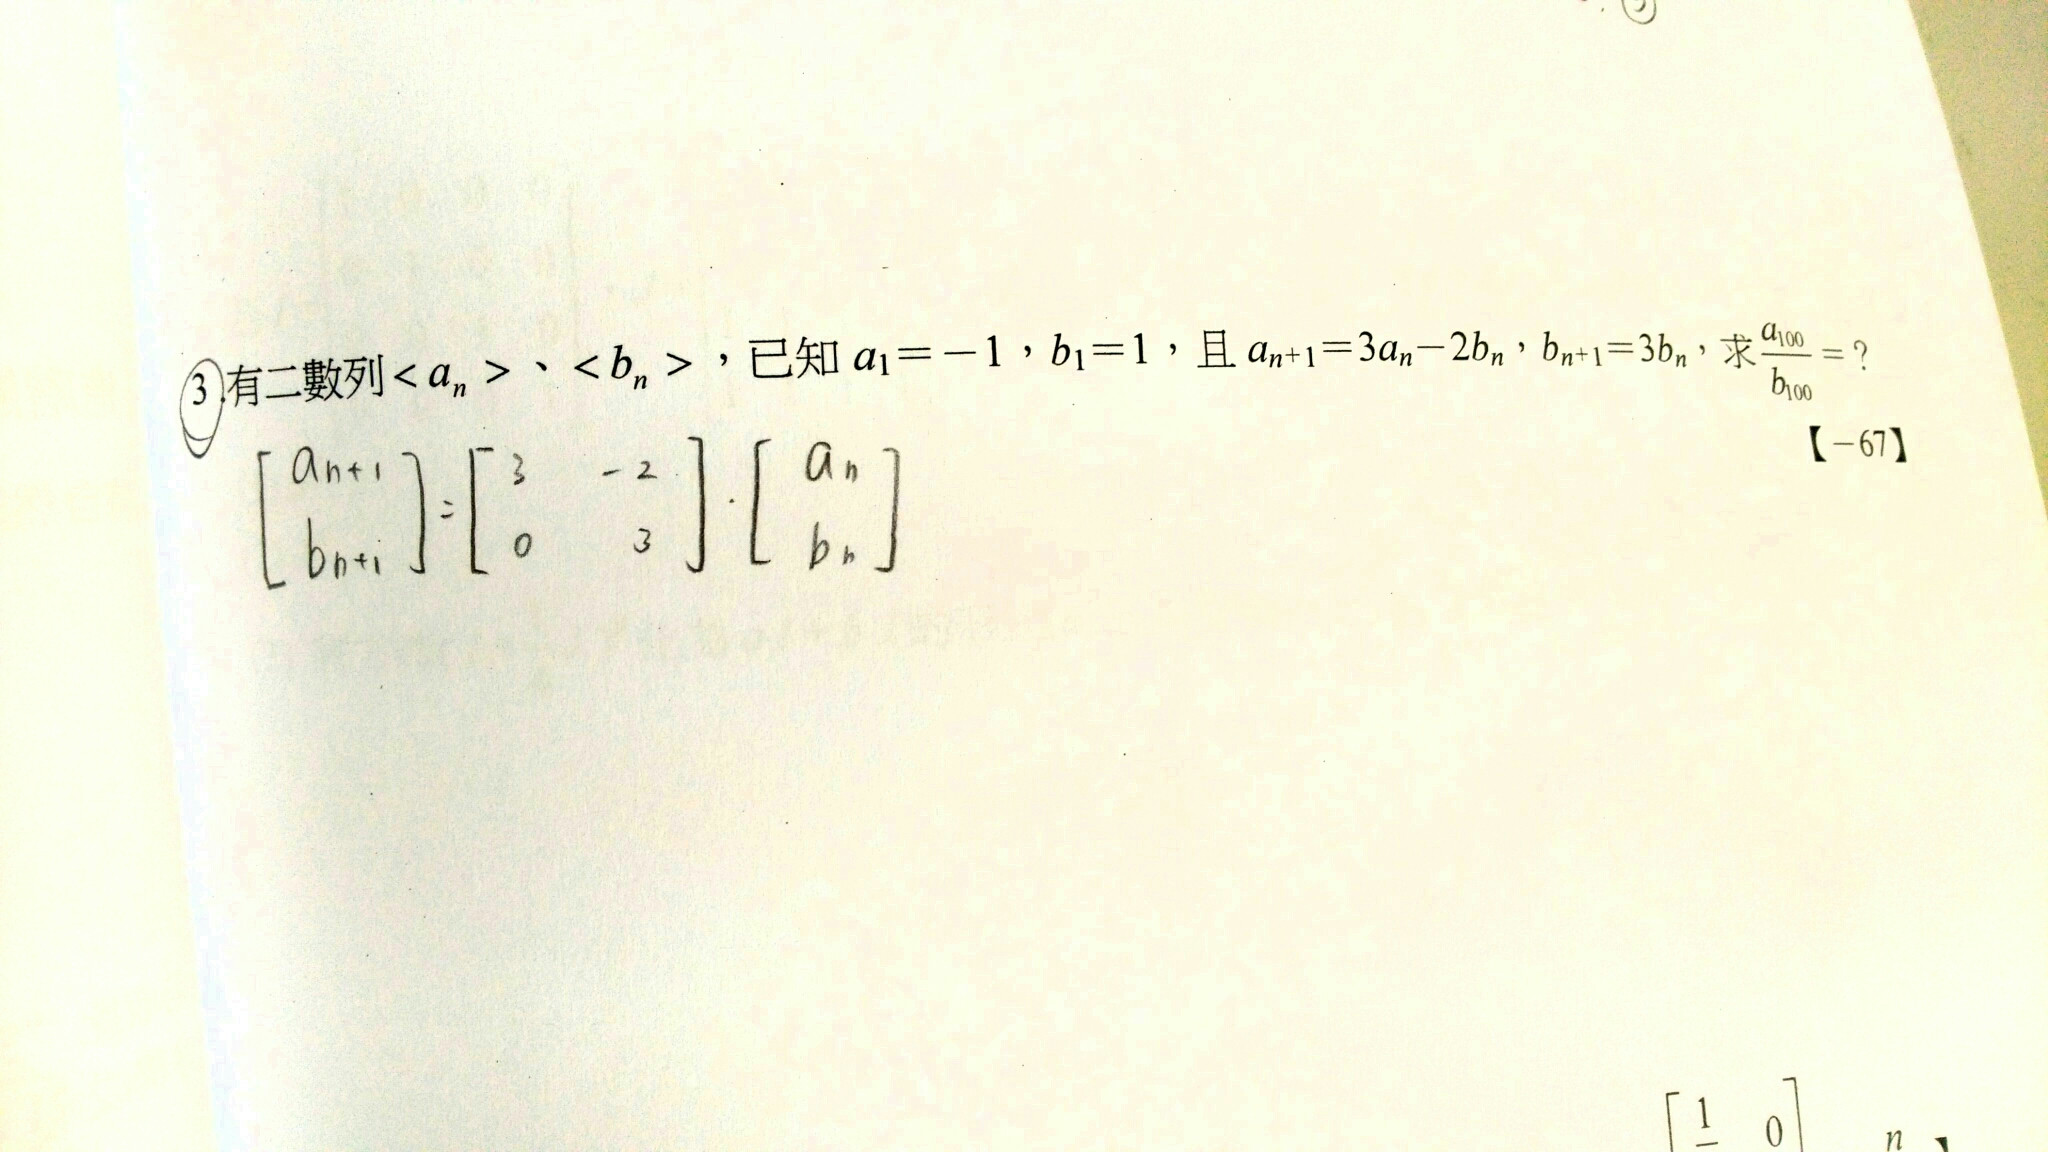 3.有二數列<aₙ>、<bₙ>，已知 a₁=−1，b₁=1，且 aₙ₊₁=3aₙ−2bₙ，bₙ₊₁=3bₙ，求 a₁₀₀/b₁₀₀ =？
【−67】
[aₙ₊₁] = [3 −2] · [aₙ]
[bₙ₊₁] [0 3] [bₙ]
[1 0] n 】